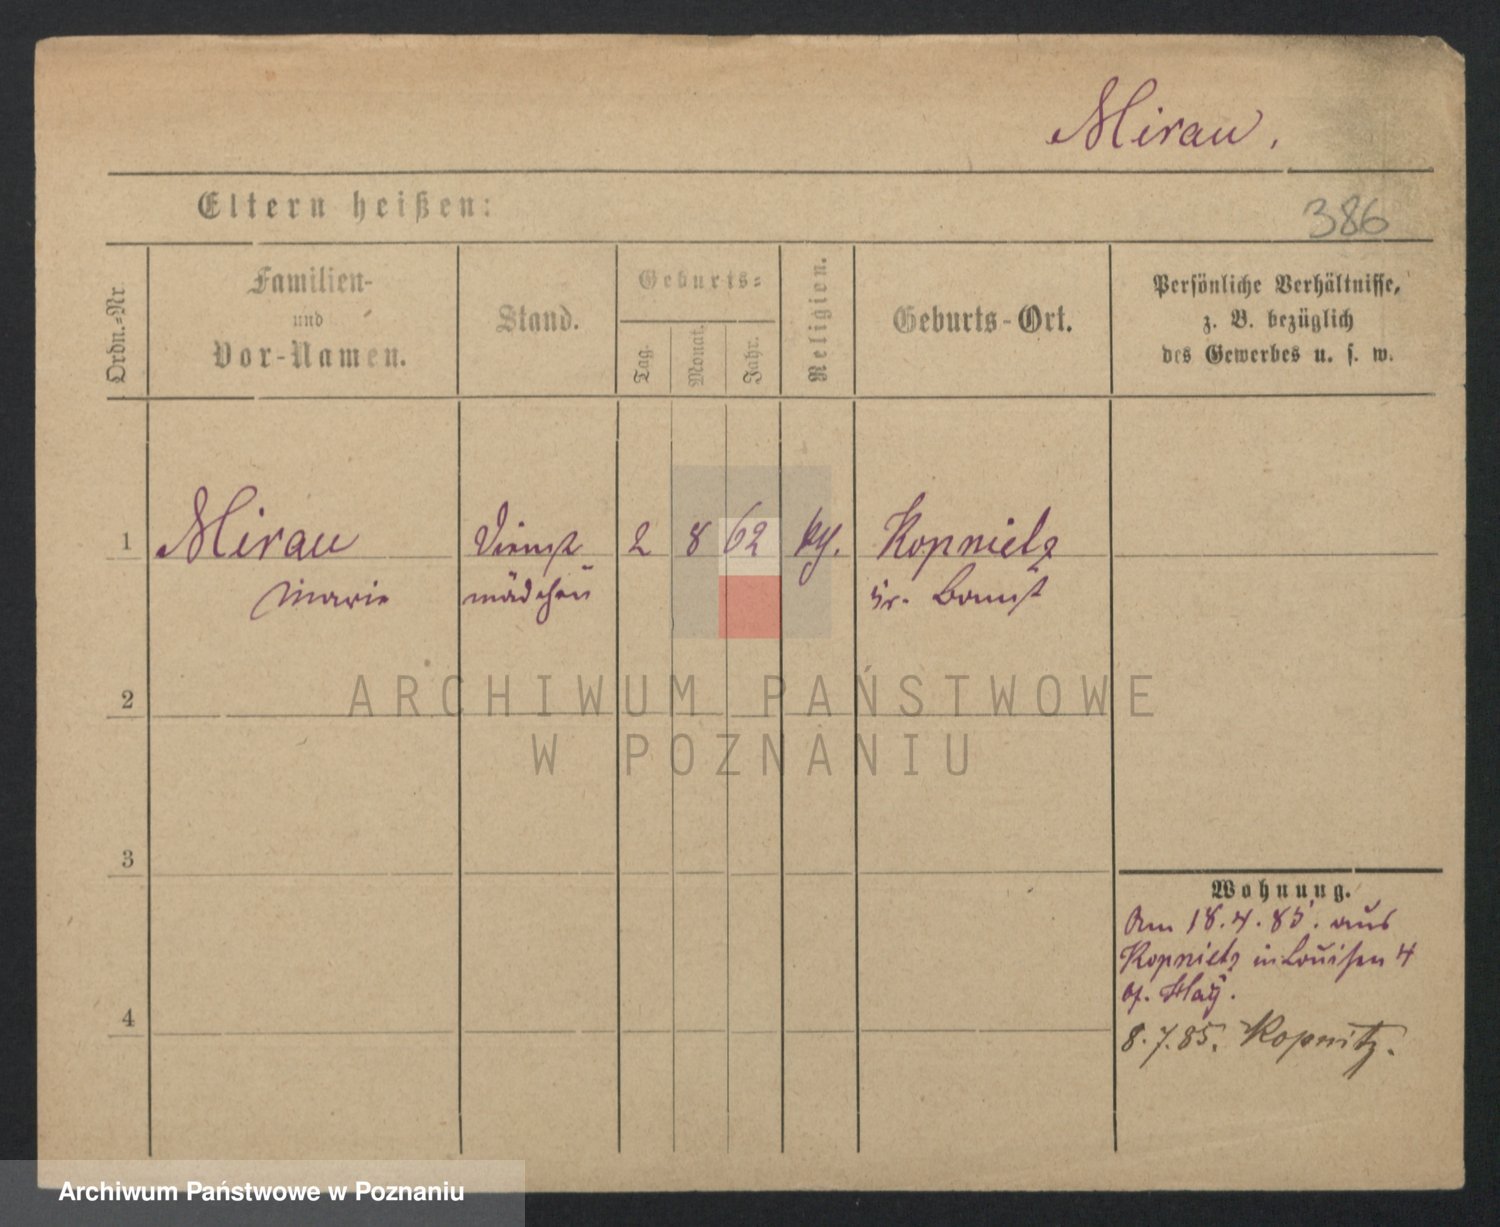 Mirau.
Eltern heißen:
386
Ordn.-Nr
Familien-
und
Vor-Namen.
Stand.
Geburts-
Tag.
Monat.
Jahr.
Religion.
Geburts-Ort.
Persönliche Verhältnisse,
z. B. bezüglich
des Gewerbes u. s. w.
1 Mirau Dienst 2 8 62 Kopnietz
Marie mädchen Kr. Bomst
2
ARCHIWUM PAŃSTWOWE
W POZNANIU
3
Wohnung.
Am 18.4.85. aus
Kopnietz in Louisen 4
4
8.7.85. Kopnitz.
Archiwum Państwowe w Poznaniu